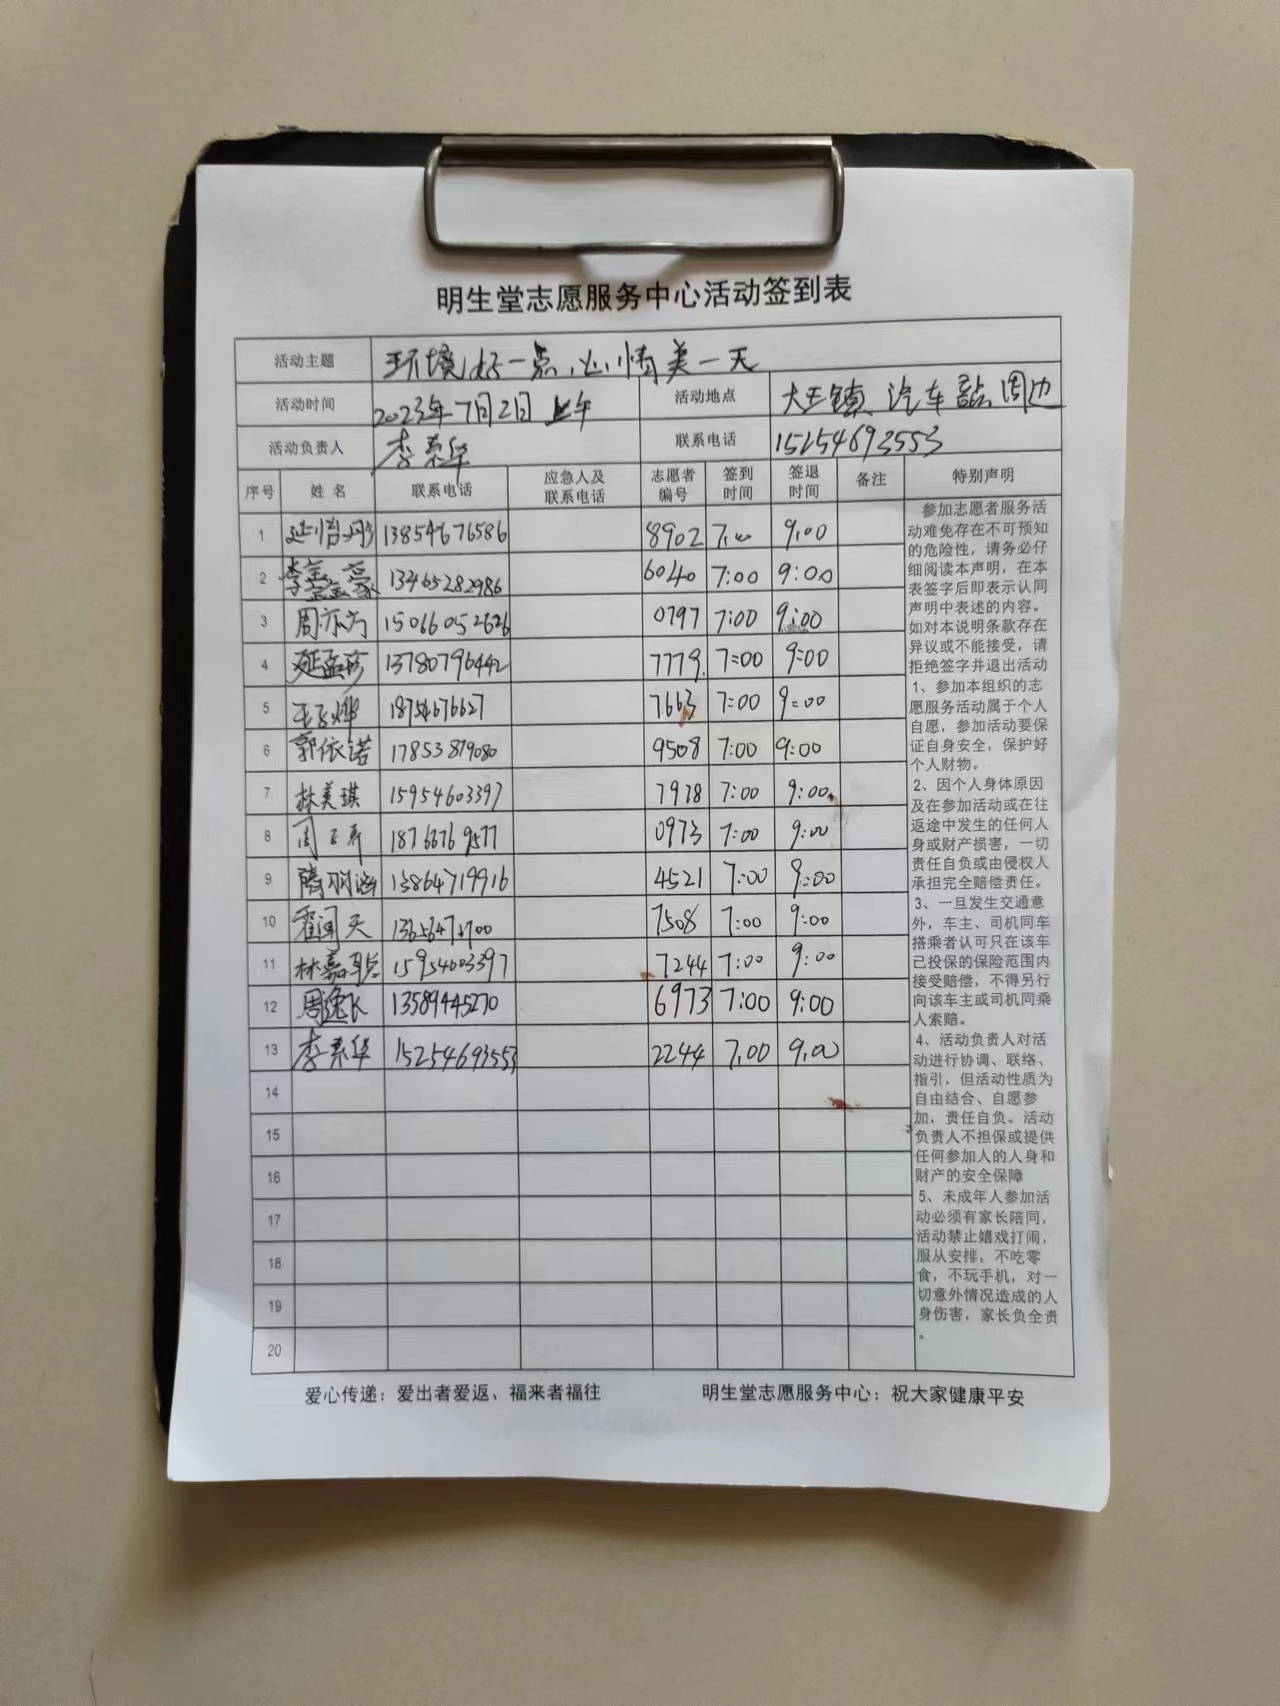 明生堂志愿服务中心活动签到表
活动主题 环境好一点,心情美一天
活动时间 2023年7月2日上午 活动地点 大王镇汽车站周边
活动负责人 李素华 联系电话 15254693553
序号 姓名 联系电话 应急人及联系电话 志愿者编号 签到时间 签退时间 备注 特别声明
1 延怡彤 13854676586 8902 7:00 9:00
2 李鑫豪 13465282986 6040 7:00 9:00
3 周亦方 15066052626 0797 7:00 9:00
4 延孟珍 13780796442 7779 7:00 9:00
5 18754676627 7663 7:00 9:00
6 郭依诺 17853879080 9508 7:00 9:00
7 林美琪 15954603397 7978 7:00 9:00
8 0973 7:00 9:00
9 13864719916 4521 7:00 9:00
10 霍闻天 7508 7:00 9:00
11 15954603397 7244 7:00 9:00
12 周逸飞 13589445270 6973 7:00 9:00
13 李素华 15254693553 2244 7:00 9:00
14
15
16
17
18
19
20
参加志愿者服务活
动难免存在不可预知
的危险性,请务必仔
细阅读本声明,在本
表签字后即表示认同
声明中表述的内容。
如对本说明条款存在
异议或不能接受,请
拒绝签字并退出活动
1、参加本组织的志
愿服务活动属于个人
自愿,参加活动要保
证自身安全,保护好
个人财物。
2、因个人身体原因
及在参加活动或在往
返途中发生的任何人
身或财产损害,一切
责任自负或由侵权人
承担完全赔偿责任。
3、一旦发生交通意
外,车主、司机同车
搭乘者认可只在该车
已投保的保险范围内
接受赔偿,不得另行
向该车主或司机同乘
人索赔。
4、活动负责人对活
动进行协调、联络、
指引,但活动性质为
自由结合、自愿参
加,责任自负。活动
负责人不担保或提供
任何参加人的人身和
财产的安全保障
5、未成年人参加活
动必须有家长陪同,
活动禁止嬉戏打闹,
服从安排,不吃零
食,不玩手机,对一
切意外情况造成的人
身伤害,家长负全责
。
爱心传递:爱出者爱返、福来者福往 明生堂志愿服务中心:祝大家健康平安